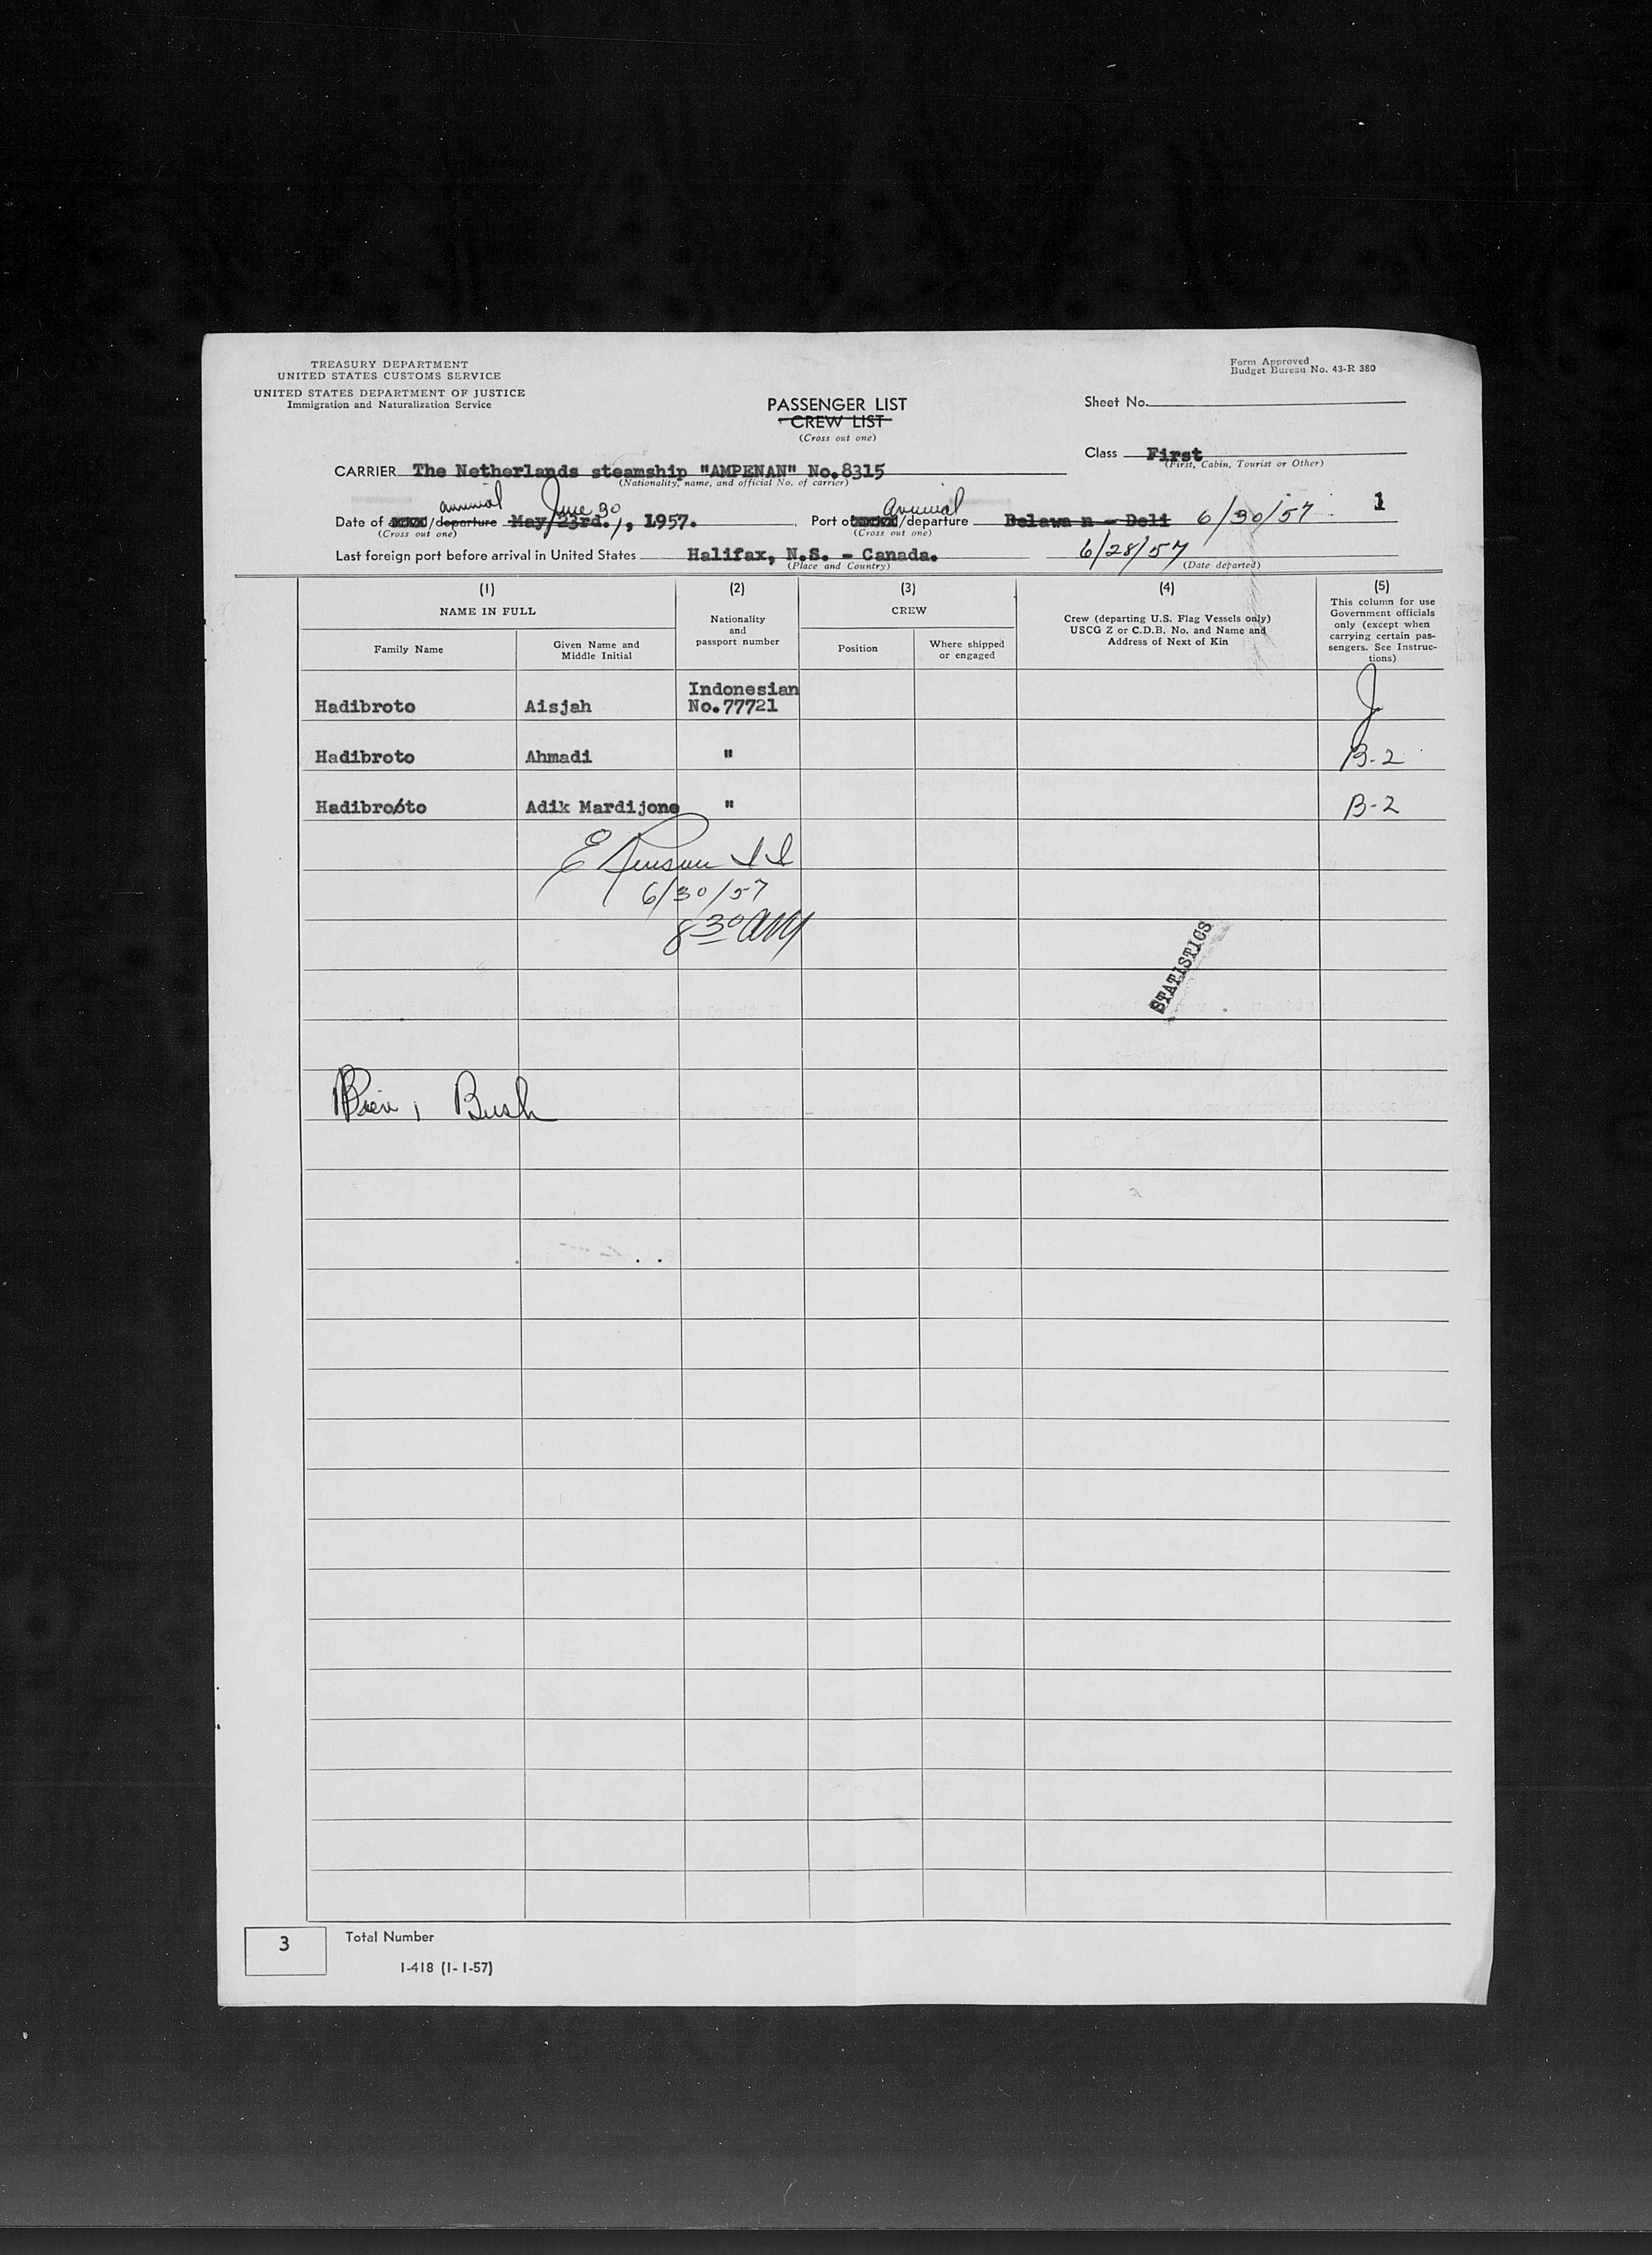 TREASURY DEPARTMENT
UNITED STATES CUSTOMS SERVICE
UNITED STATES DEPARTMENT OF JUSTICE
Immigration and Naturalization Service
Form Approved
Budget Bureau No. 43-R 380
PASSENGER LIST
CREW LIST
(Cross out one)
Sheet No.
Class First
(First, Cabin, Tourist or Other)
CARRIER The Netherlands steamship "AMPENAN" No.8315
(Nationality, name, and official No. of carrier)
arrival June 30 arrival
Date of /departure May/23rd./, 1957. Port of /departure Belawa n - Deli 6/30/57 1
(Cross out one) (Cross out one)
Last foreign port before arrival in United States Halifax, N.S. - Canada. 6/28/57
(Place and Country) (Date departed)
(1) (2) (3) (4) (5)
NAME IN FULL
Family Name
Given Name and
Middle Initial
Nationality
and
passport number
CREW
Position
Where shipped
or engaged
Crew (departing U.S. Flag Vessels only)
USCG Z or C.D.B. No. and Name and
Address of Next of Kin
This column for use
Government officials
only (except when
carrying certain pas-
sengers. See Instruc-
tions)
Indonesian
Hadibroto Aisjah No.77721 J
Hadibroto Ahmadi " B-2
Hadibroto Adik Mardijone " B-2
6/30/57
8 30 AM
STATISTICS
Bush
3 Total Number
I-418 (1-1-57)